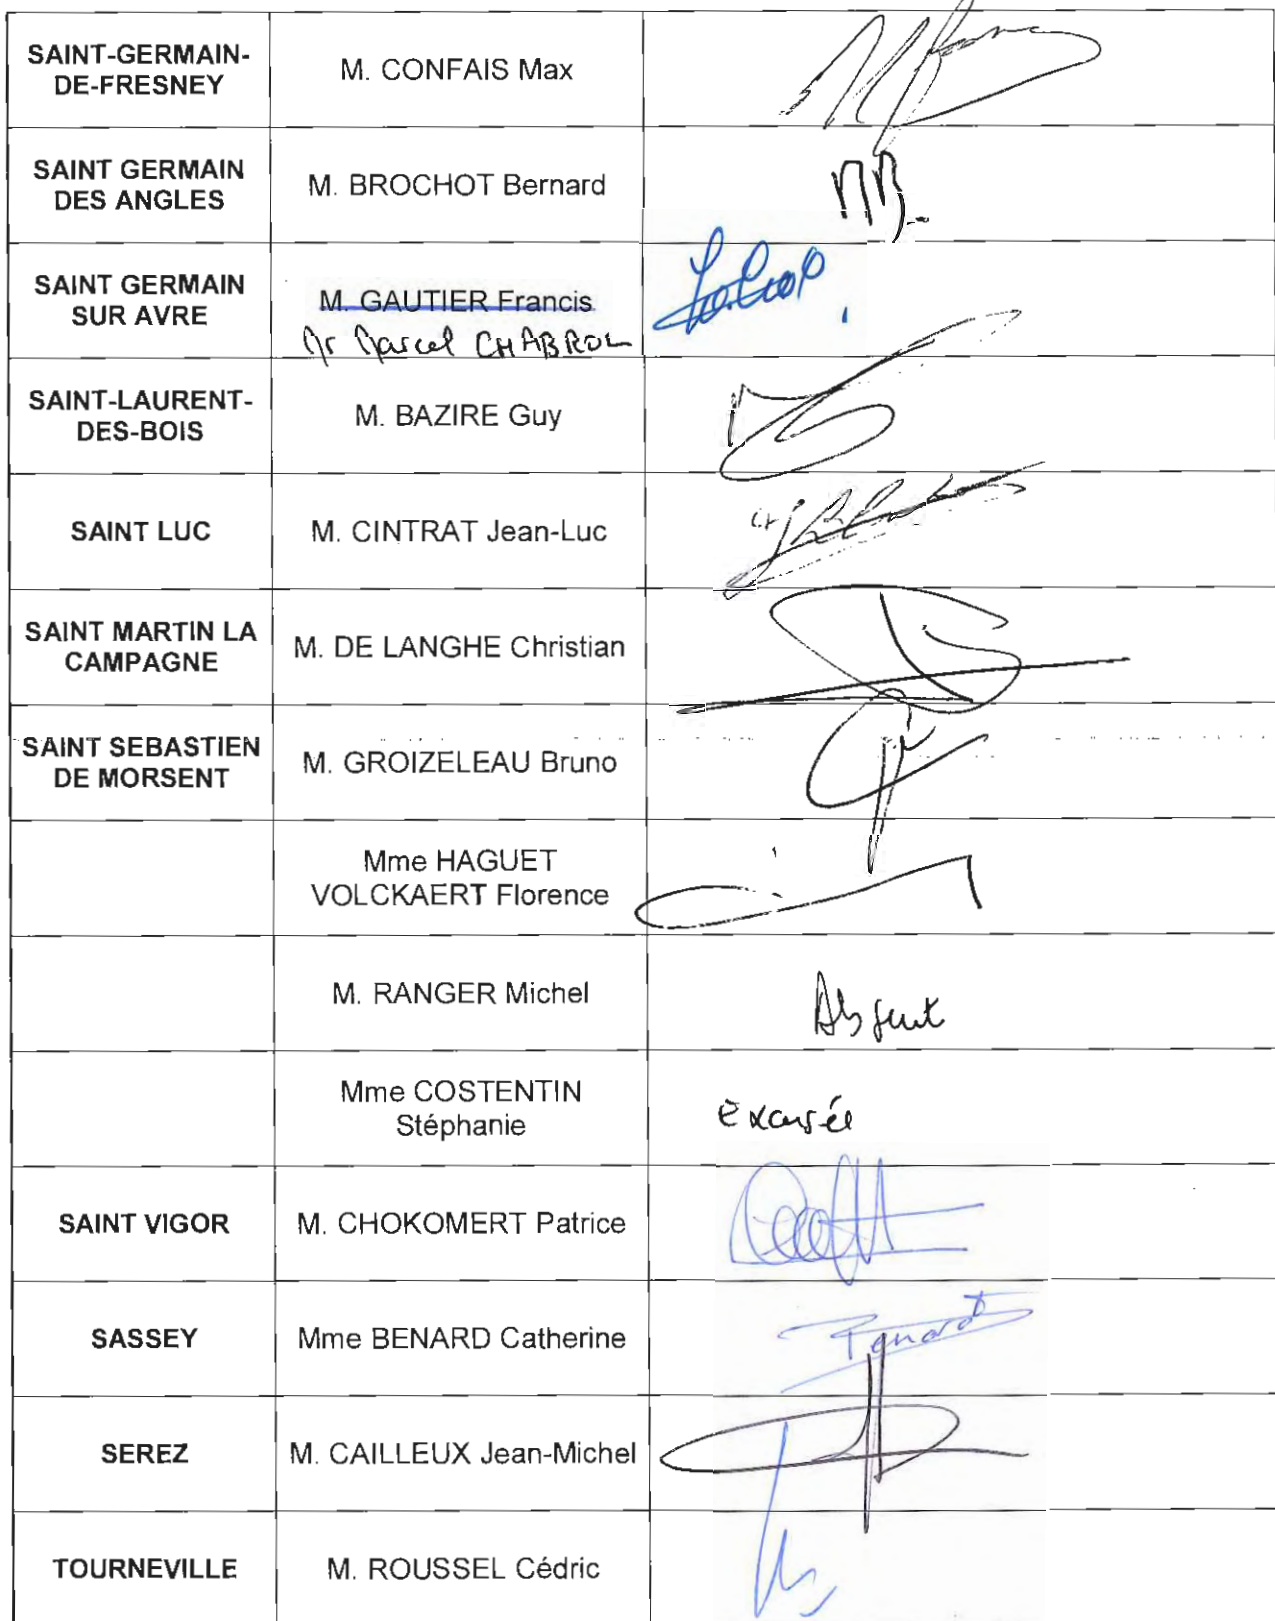 SAINT-GERMAIN-
DE-FRESNEY
M. CONFAIS Max
SAINT GERMAIN
DES ANGLES
M. BROCHOT Bernard
SAINT GERMAIN
SUR AVRE
M. GAUTIER Francis
Mr Marcel CHABROL
SAINT-LAURENT-
DES-BOIS
M. BAZIRE Guy
SAINT LUC
M. CINTRAT Jean-Luc
SAINT MARTIN LA
CAMPAGNE
M. DE LANGHE Christian
SAINT SEBASTIEN
DE MORSENT
M. GROIZELEAU Bruno
Mme HAGUET
VOLCKAERT Florence
M. RANGER Michel
Absent
Mme COSTENTIN
Stéphanie
Excusée
SAINT VIGOR
M. CHOKOMERT Patrice
SASSEY
Mme BENARD Catherine
Benard
SEREZ
M. CAILLEUX Jean-Michel
TOURNEVILLE
M. ROUSSEL Cédric